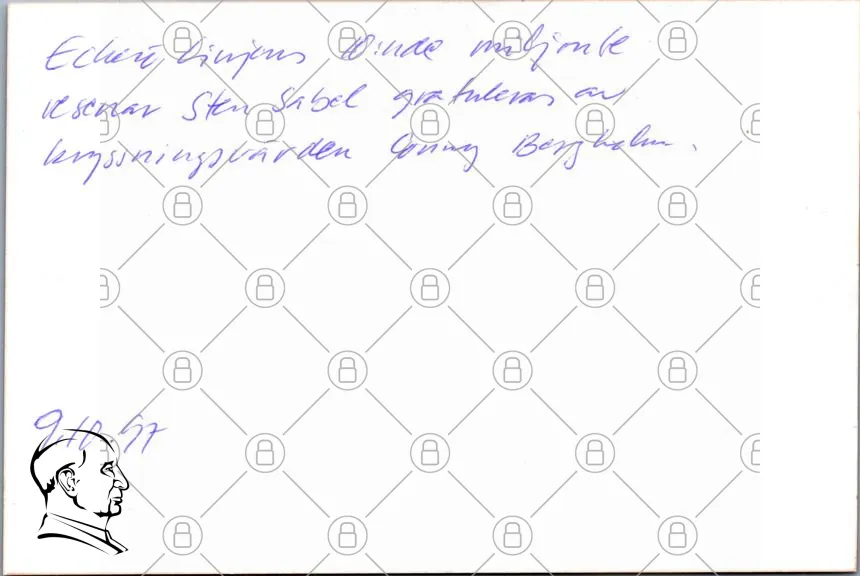 Eckerö Linjens 10:nde miljonte
resenär Sten Sabel gratuleras av
kryssningsvärden Conny Bergholm.
9.10.97